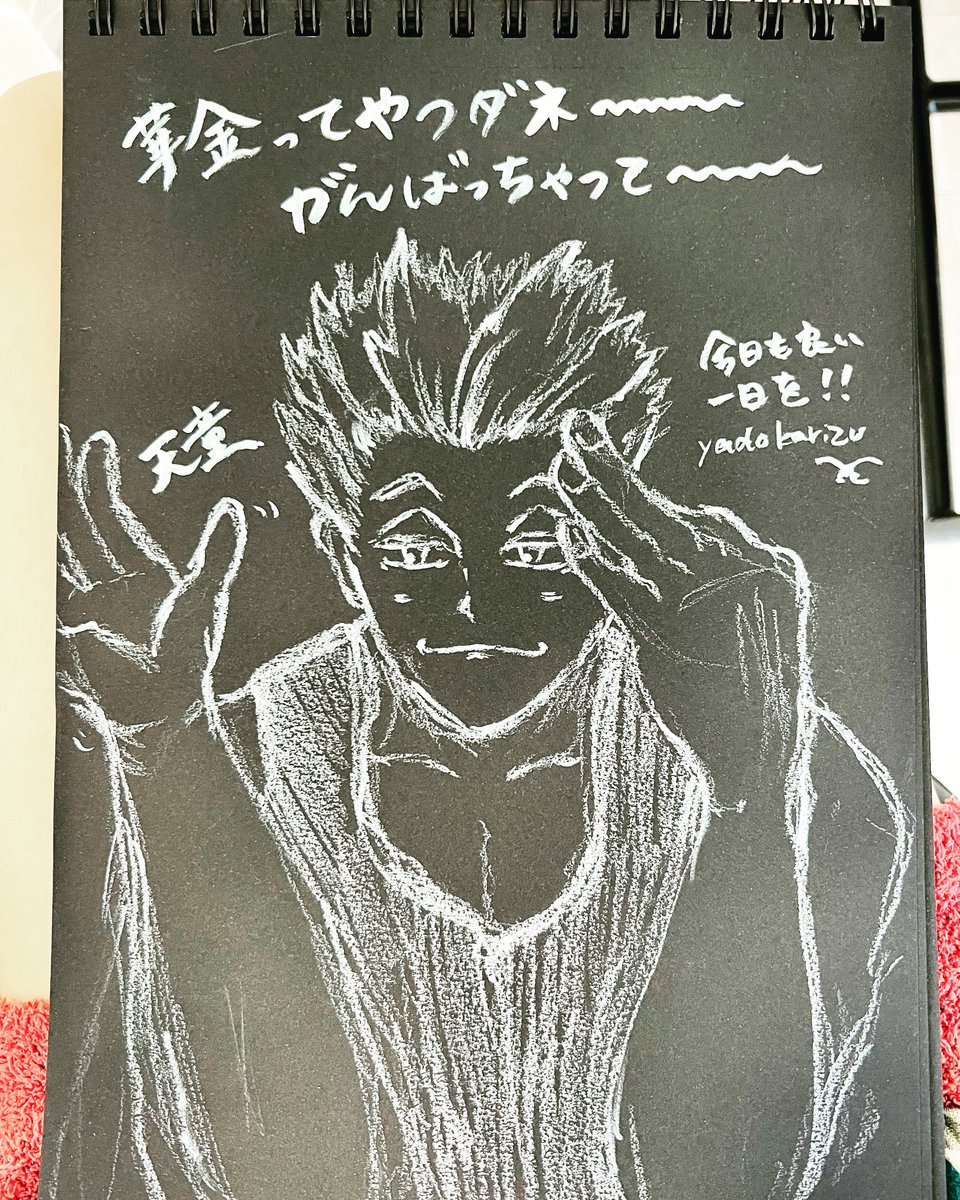 華金ってやつダネ〜〜〜
がんばっちゃって〜〜〜
今日も良い
一日を!!
yadokarizu
天堂